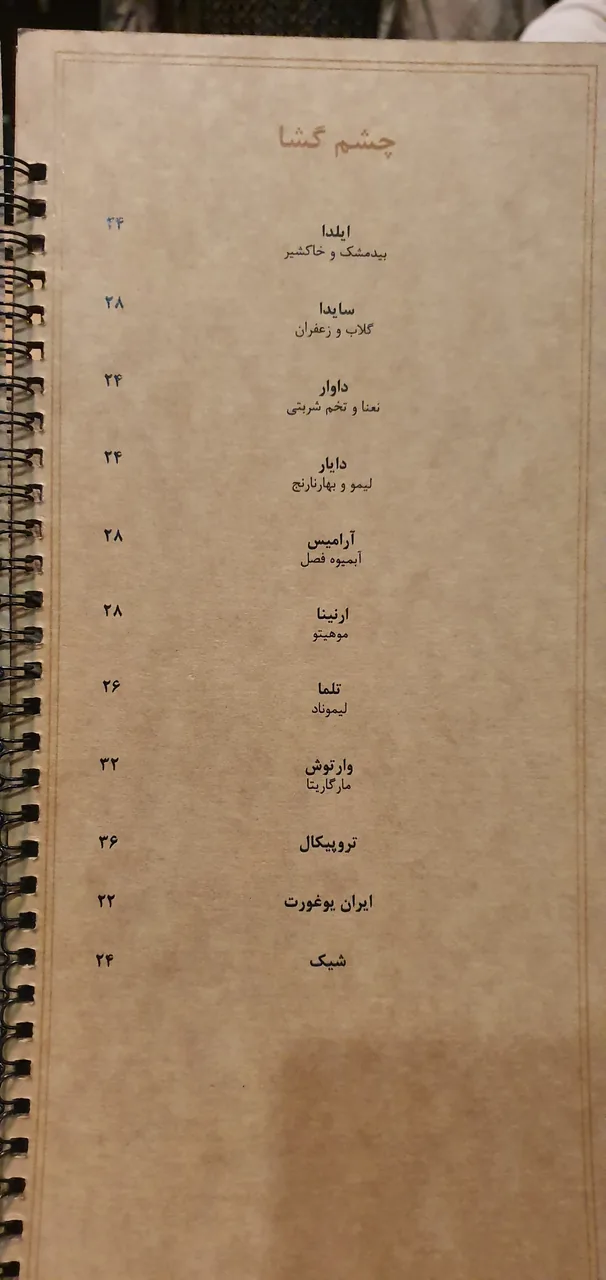 چشم گشا
ایلدا ۲۴
بیدمشک و خاکشیر
سایدا ۲۸
گلاب و زعفران
داوار ۲۴
نعنا و تخم شربتی
دایار ۲۴
لیمو و بهارنارنج
آرامیس ۲۸
آبمیوه فصل
ارنینا ۲۸
موهیتو
تلما ۲۶
لیموناد
وارتوش ۳۲
مارگاریتا
تروپیکال ۳۶
ایران یوغورت ۲۲
شیک ۲۴